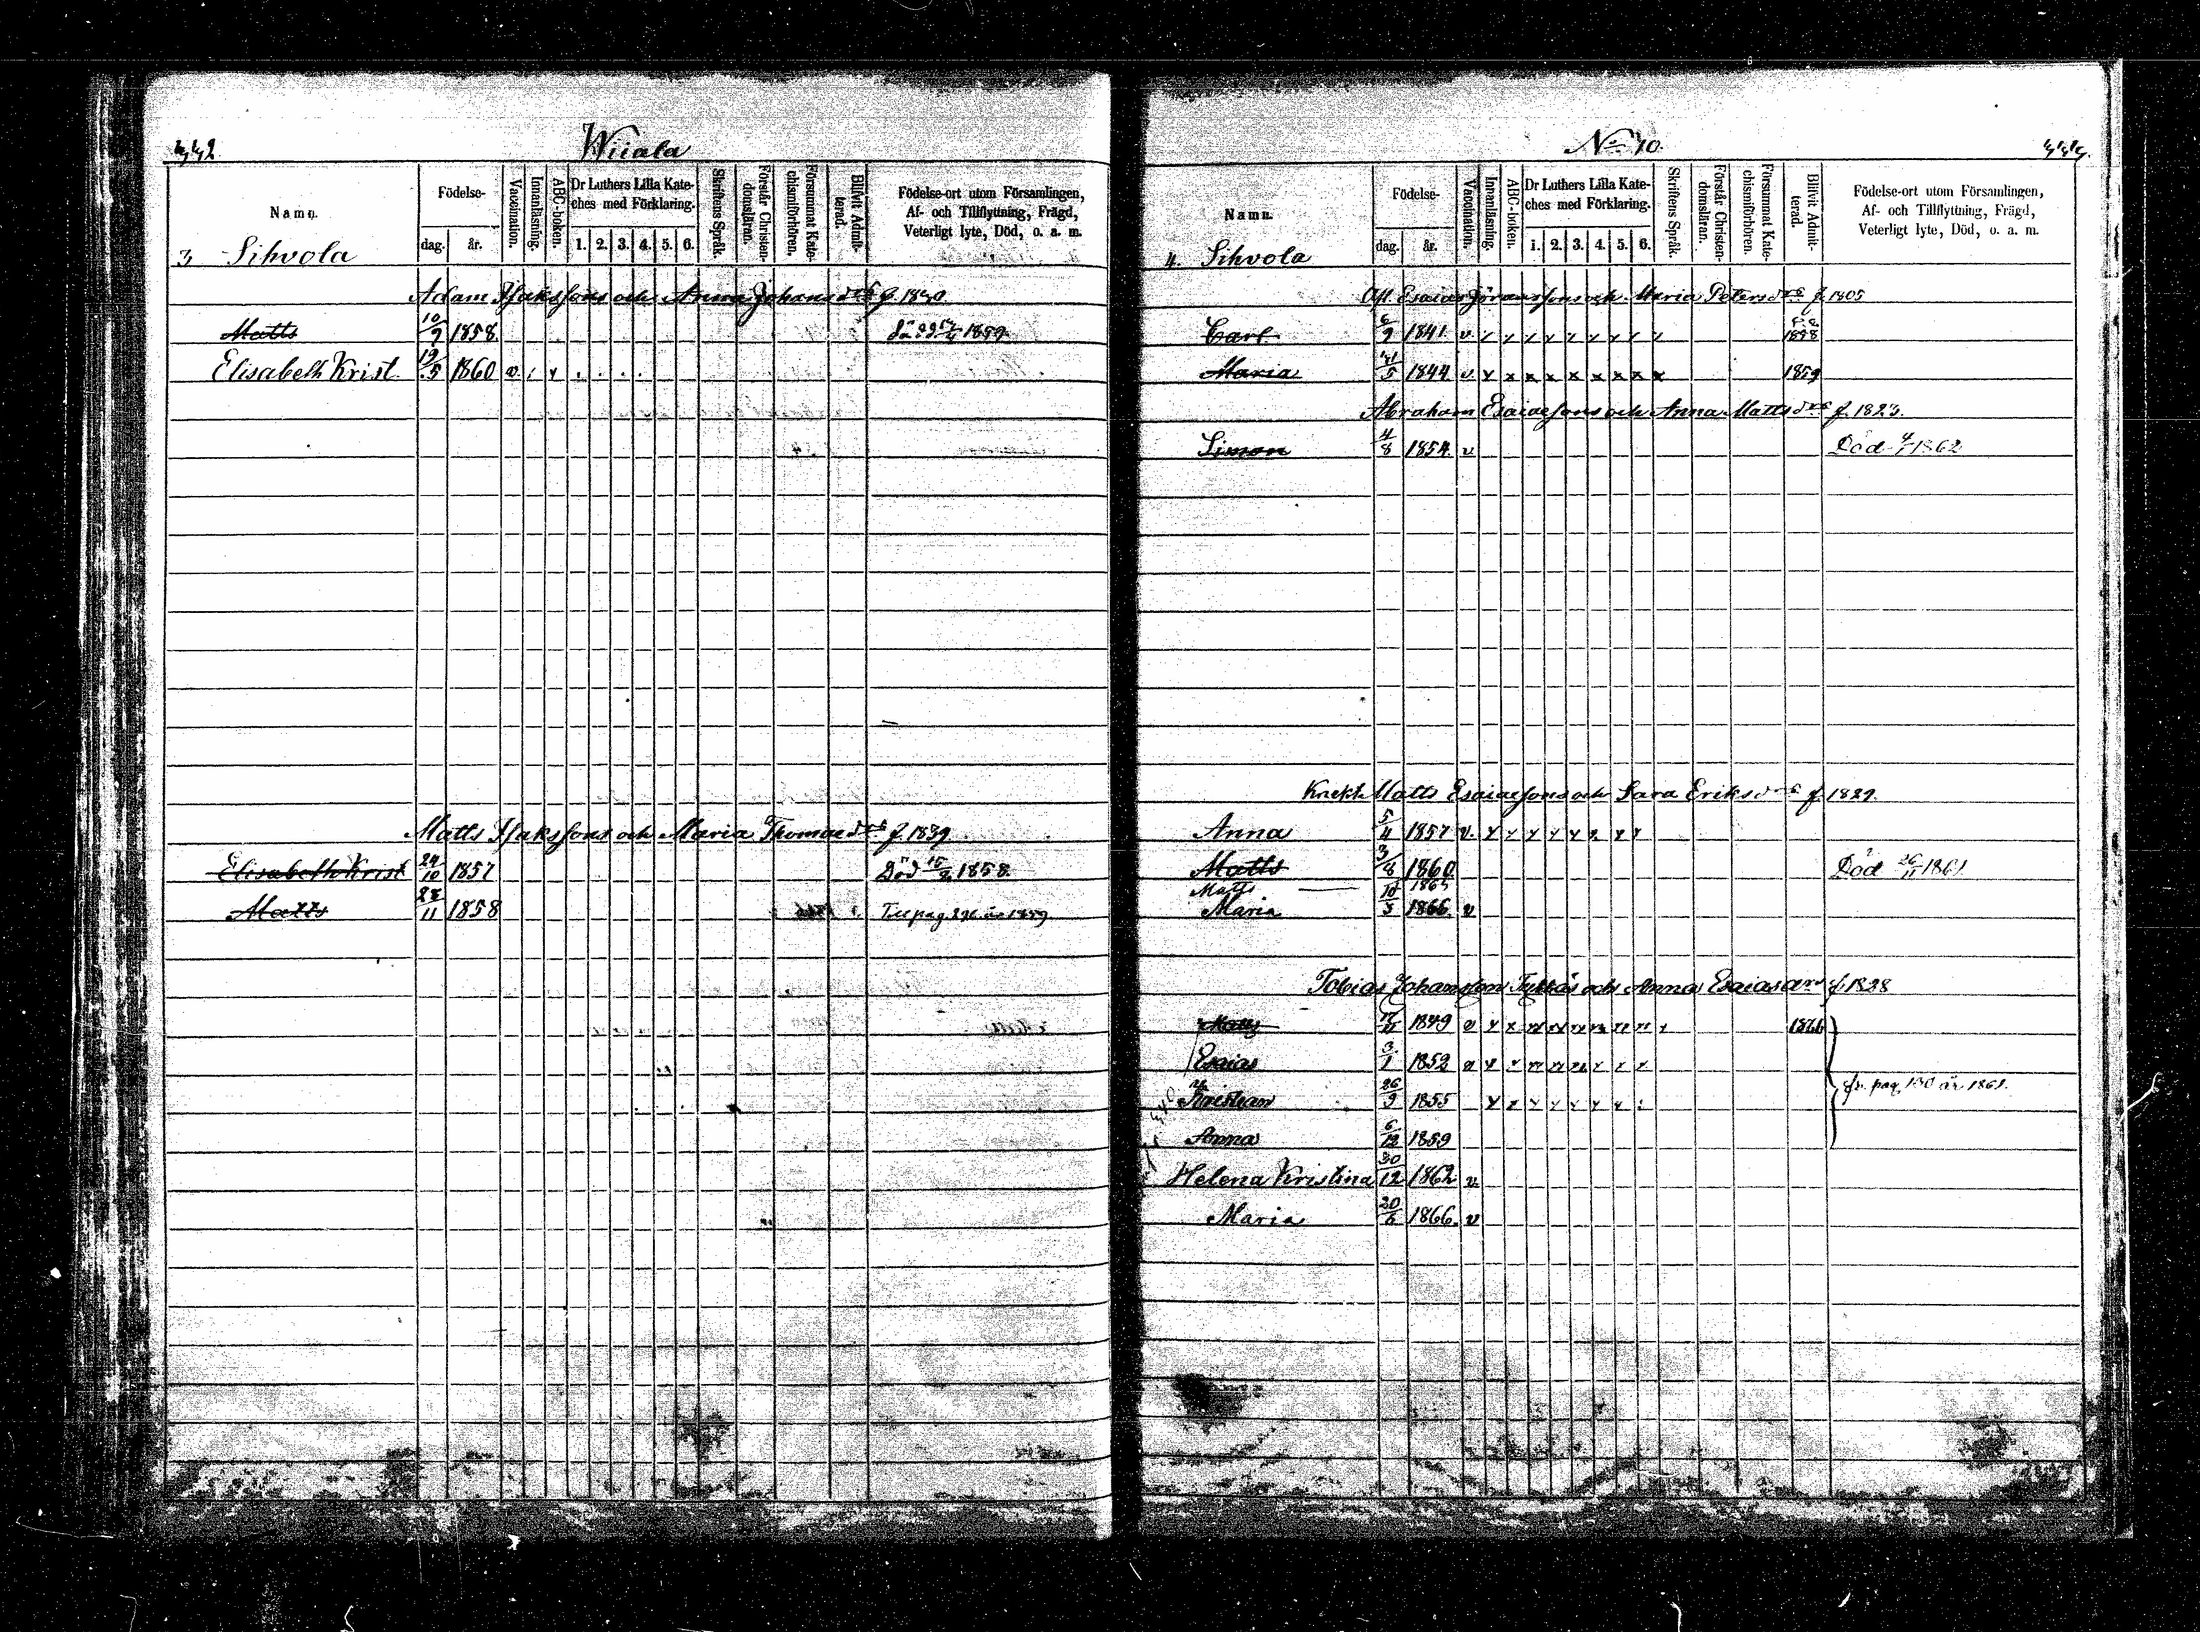 442 Wiiala
Namn. Födelse- dag. år. Vaccination. Innanläsning. ABC-boken. Dr Luthers Lilla Kateches med Förklaring. 1. 2. 3. 4. 5. 6. Skriftens Språk. Förstår Christendomsläran. Försummat Katechismiförhören. Blifvit Admitterad. Födelse-ort utom Församlingen, Af- och Tillflyttning, Frägd, Veterligt lyte, Död, o. a. m.
3 Sihvola
Adam Isakssons och Anna Johansdrs f. 1830.
Matts 10/9 1858.
Elisabeth Krist. 19/5 1860 v.
Matts Isakssons och Maria Thomaedrs f. 1839
Elisabeth Krist 24/10 1857 Död 15/2 1858.
Matts 28/11 1858 Till pag. 1859
No 10.
Namn. Födelse- dag. år. Vaccination. Innanläsning. ABC-boken. Dr Luthers Lilla Kateches med Förklaring. 1. 2. 3. 4. 5. 6. Skriftens Språk. Förstår Christendomsläran. Försummat Katechismiförhören. Blifvit Admitterad. Födelse-ort utom Församlingen, Af- och Tillflyttning, Frägd, Veterligt lyte, Död, o. a. m.
4. Sihvola
Esaias Göranssons och Maria Petersdrs f. 1805
Carl 6/9 1841. v. 1858
Maria 5 1844 v. x x x x x x x x x 1859
Abraham Esaiaesons och Anna Mattsdrs f. 1823.
Simon 4/8 1854. v Död 1862
Knekt Matts Esaiaesons och Sara Eriksdrs f. 1829.
Anna 5/4 1857 v.
Matts 3/8 1860 Död 26/11 1861
Matts 1863
Maria 10/3 1866. v
Tobias Johansson och Anna Esaiasdrs f. 1828
Matts 1849 1866
Esaias 3/1 1852
Kristian 26/9 1855 fr. pag. 130 år 1861.
Anna 6/12 1859
Helena Kristina 30/12 1862 v.
Maria 20/6 1866. v